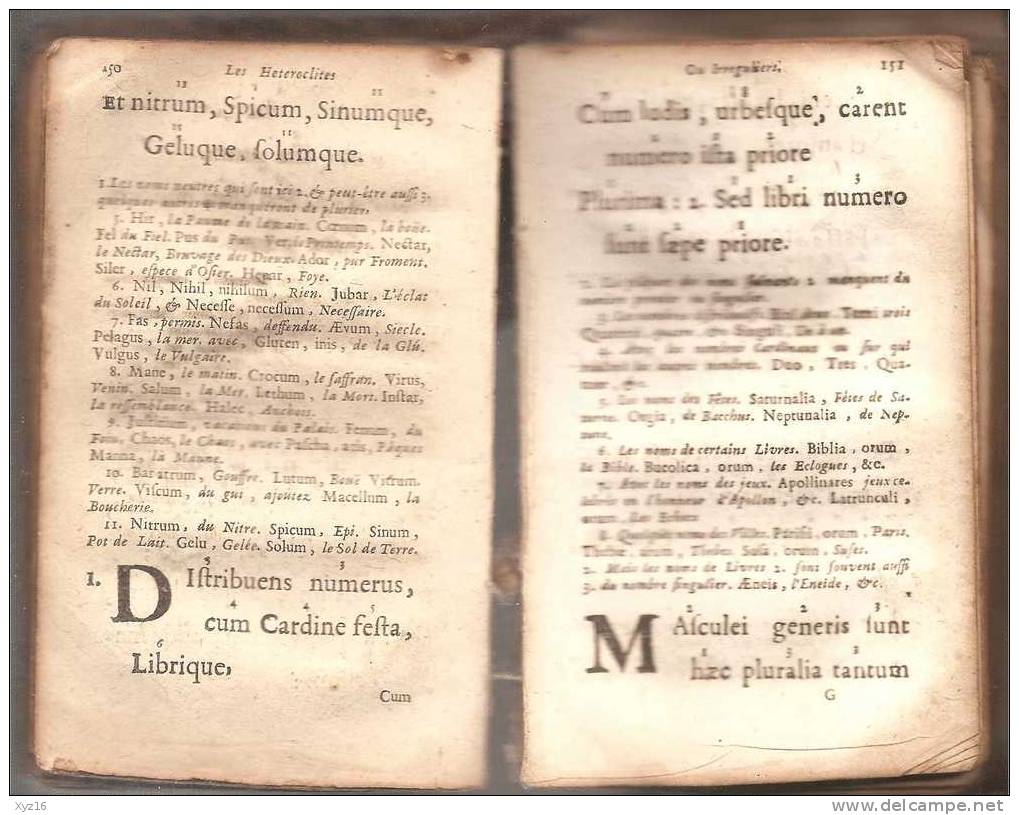 150 Les Heteroclites
13 11
Et nitrum, Spicum, Sinumque,
11 11
Geluque, ſolumque.
1. Les noms neutres qui ſont ici 2. & peut-être auſſi 3.
quelques autres manqueront de plurier.
5. Hir, la Paume de la main. Cœnum, la boüe.
Fel du Fiel. Pus du Pus. Ver, le Printemps. Nectar,
le Nectar, Bruvage des Dieux. Ador, pur Froment.
Siler, eſpece d'Oſier. Hepar, Foye.
6. Nil, Nihil, nihilum, Rien. Jubar, L'éclat
du Soleil, & Neceſſe, neceſſum, Neceſſaire.
7. Fas, permis. Nefas, deffendu. Ævum, Siecle.
Pelagus, la mer. avec, Gluten, inis, de la Glû.
Vulgus, le Vulgaire.
8. Mane, le matin. Crocum, le ſaffran. Virus,
Venin. Salum, la Mer. Lethum, la Mort. Inſtar,
la reſſemblance. Halec, Anchois.
9. Juſtitium, vacations du Palais. Fœnum, du
Foin, Chaos, le Chaos, avec Paſcha, atis, Pâques
Manna, la Manne.
10. Baratrum, Gouffre. Lutum, Boue Vitrum.
Verre. Viſcum, du gui, ajoutez Macellum, la
Boucherie.
11. Nitrum, du Nitre. Spicum, Epi. Sinum,
Pot de Lait. Gelu, Gelée. Solum, le Sol de Terre.
3
1. DIſtribuens numerus,
4 4 5
cum Cardine feſta,
6
Librique,
Cum
Ou Irreguliers. 151
2
Cum ludis, urbeſque, carent
numero iſta priore
2 3
Plurima: 2. Sed libri numero
ſunt ſæpe priore.
manquent du
Terni trois
4. Avec les nombres Cardinaux ou ſur qui
Duo, Tres, Qua-
tuor, &c.
5. Les noms des Fêtes. Saturnalia, Fêtes de Sa-
turne. Orgia, de Bacchus. Neptunalia, de Nep-
tune.
6. Les noms de certains Livres. Biblia, orum,
la Bible. Bucolica, orum, les Eclogues, &c.
7. Avec les noms des jeux. Apollinares jeux ce-
lebrés en l'honneur d'Apollon, &c. Latrunculi,
orum. Les Echecs
8. Quelques noms des Villes. Pariſii, orum, Paris.
Thebæ, arum, Thebes. Suſa, orum, Suſes.
2. Mais les noms de Livres 2. ſont ſouvent auſſi
3. du nombre ſingulier. Æneis, l'Eneide, &c.
2 2 3
MAſculei generis ſunt
3 3
hæc pluralia tantum
G
Xyz16
www.delcampe.net